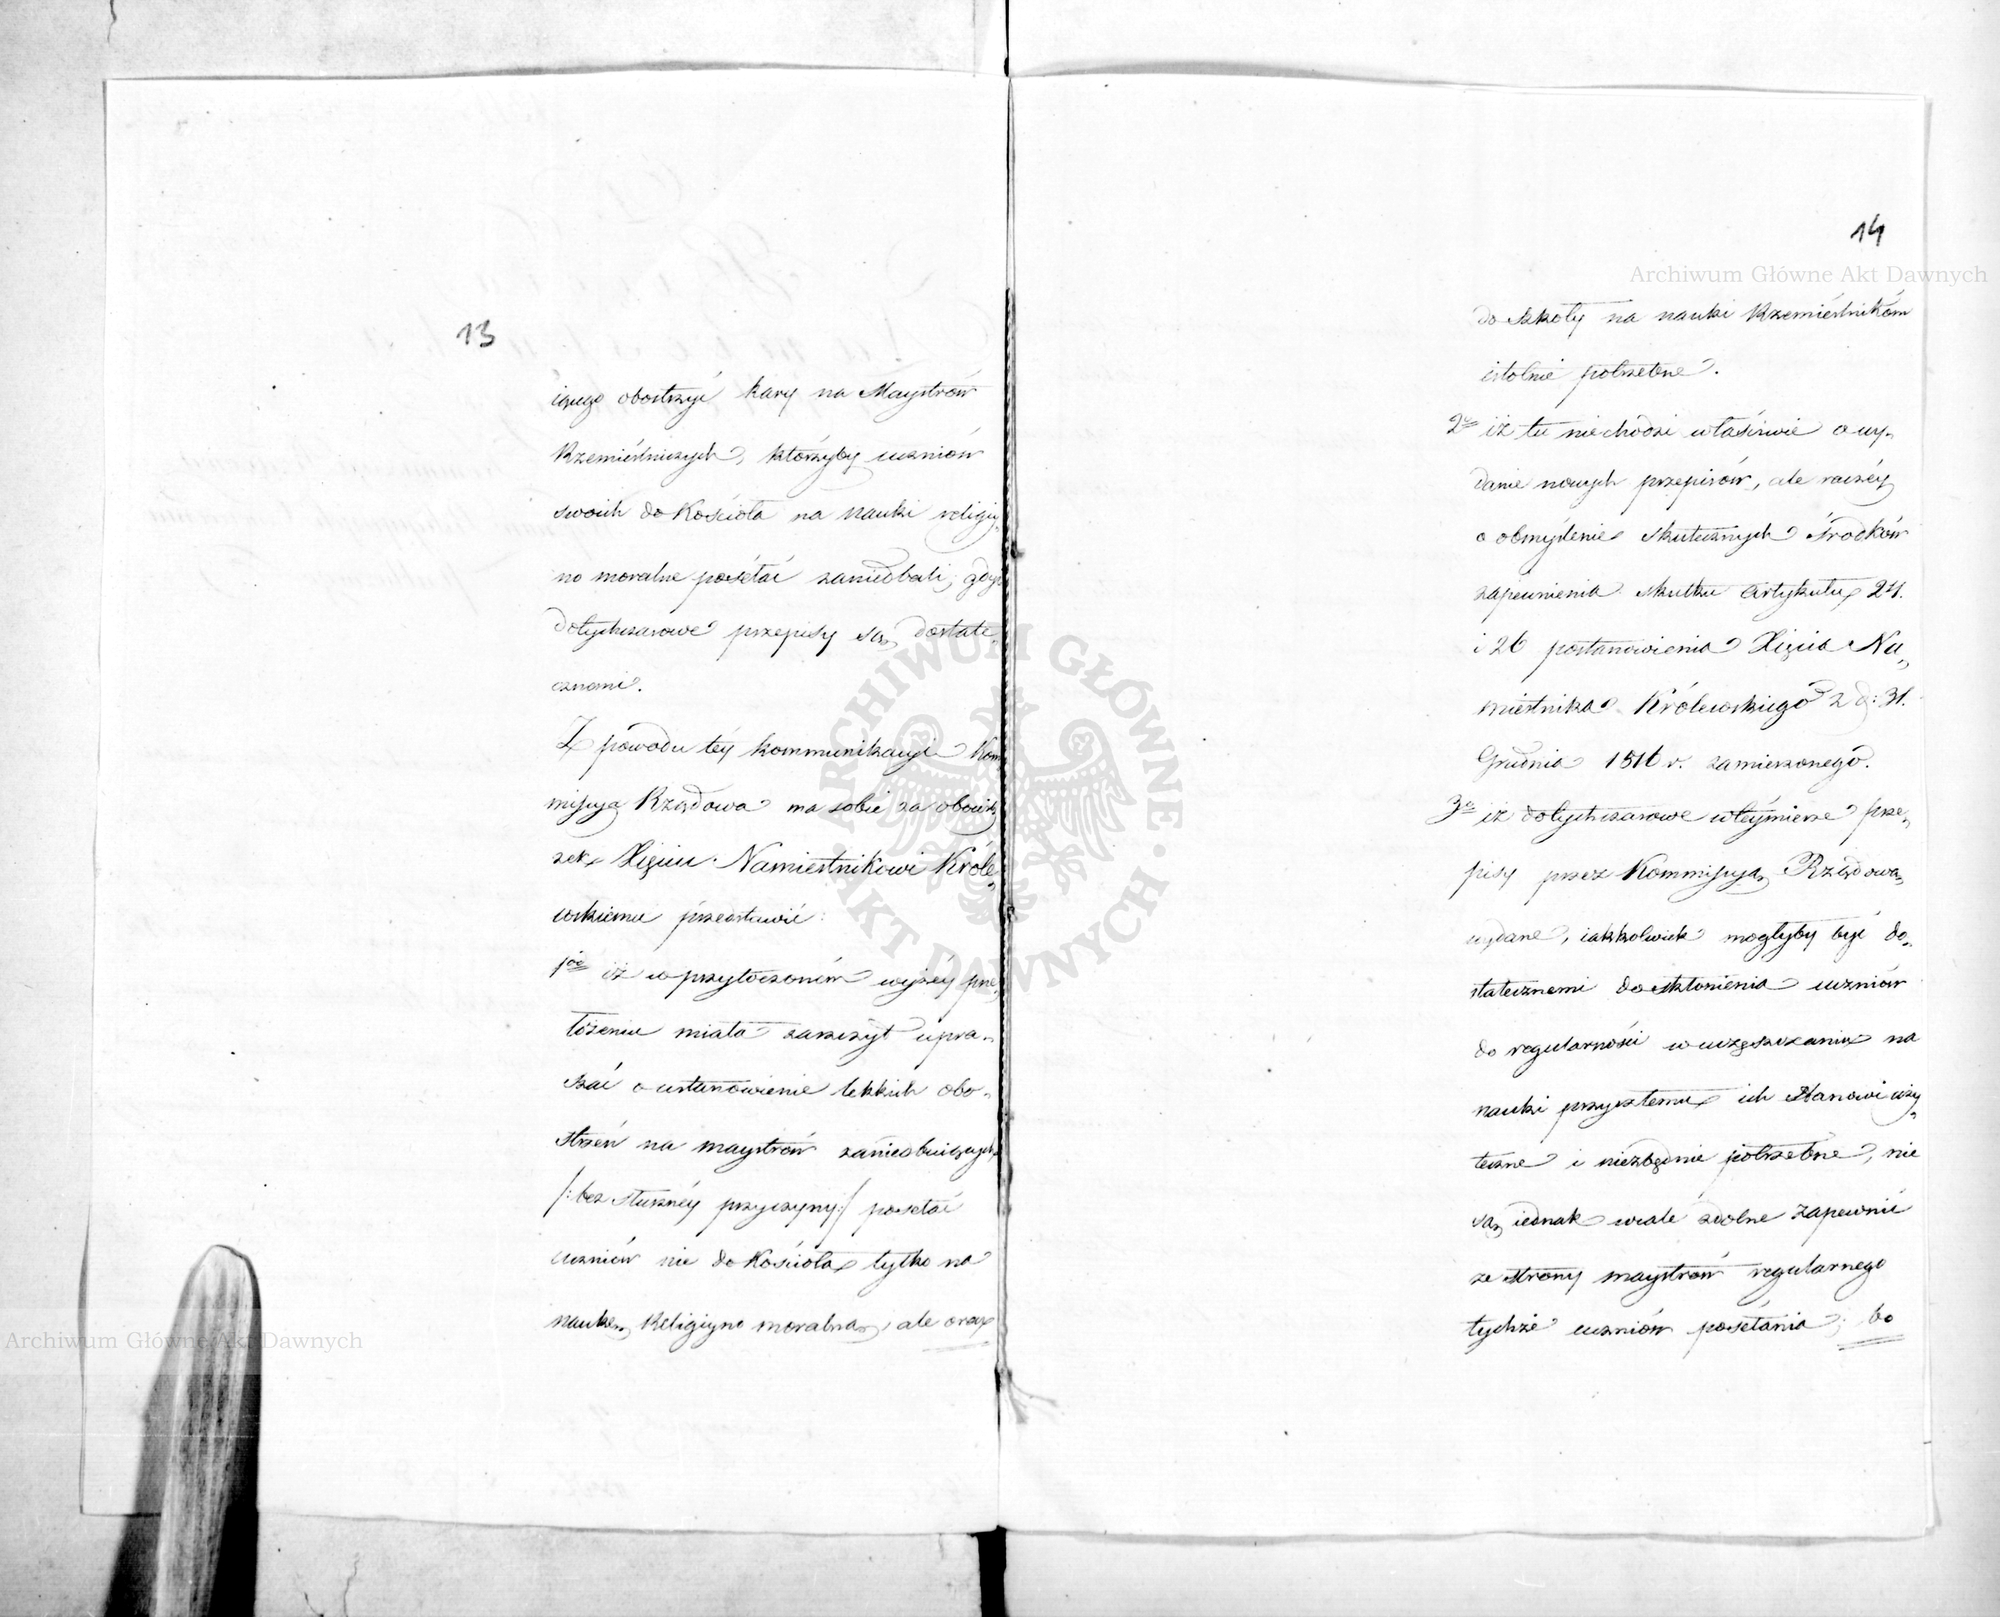 13
iącego obostrzyć kary na Maystrów
Rzemieślniczych, którzyby uczniów
swoich do Kościoła na nauki religiy„
no moralne posełać zaniedbali; gdyż
dotychczasowe przepisy są dostate„
cznemi.
Z powodu téy kommunikacyi Kom
missya Rządowa ma sobie za obowią
zek Xięciu Namiestnikowi Króle„
wskiemu przedstawić:
1óe iż w przytoczoném wyżéy prze„
łożeniu miała zaszczyt upra„
szać o ustanowienie lekkich obo„
strzeń na maystrów zaniedbuiących
/: bez słusznéy przyczyny :/ posełać
uczniów nie do Kościoła tylko na
naukę Religiyno moralną, ale oraz
14
do szkoły na nauki Rzemieślnikom
istotnie potrzebne.
2e iż tu nie chodzi właściwie o wy„
danie nowych przepisów, ale raczéy
o obmyślenie skutecznych środków
zapewnienia skutku Artykułu 24.
i 26 postanowienia Xięcia Na„
miestnika Królewskiego z d: 31.
Grudnia 1816 r. zamierzonego.
3e iż dotychczasowe w téy mierze prze„
pisy przez Kommissyą Rządową
wydane, iakkolwiek mogłyby być do„
statecznemi do skłonienia uczniów
do regularności w uczęszczaniu na
nauki przyszłemu ich Stanowi uży„
teczne i niezbędnie potrzebne, nie
są iednak wcale zdolne zapewnić
ze strony maystrów regularnego
tychże uczniów posełania; bo
Archiwum Główne Akt Dawnych
Archiwum Główne Akt Dawnych
ARCHIWUM GŁÓWNE · AKT DAWNYCH ·